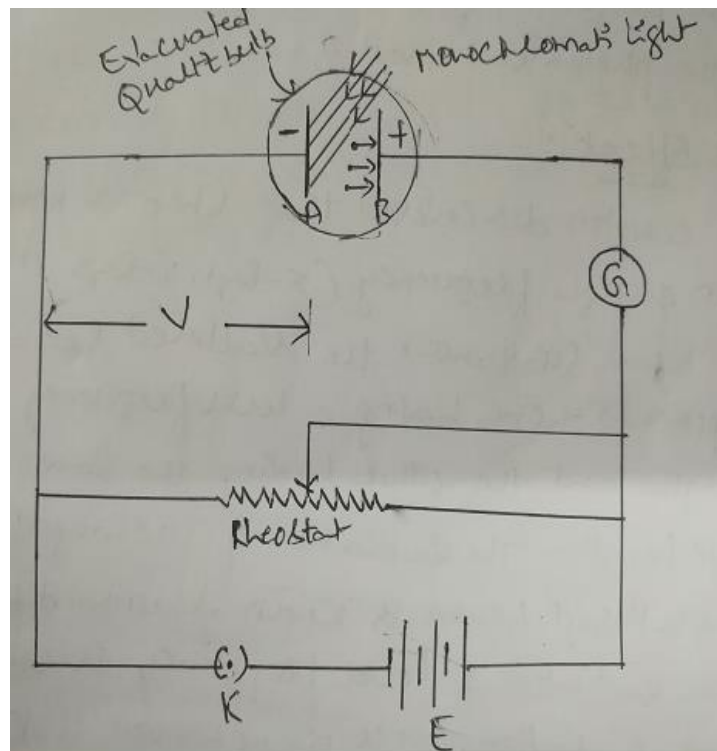 Evacuated
Quartz bulb
Monochromatic light
- +
A B
G
V
Rheostat
K
E